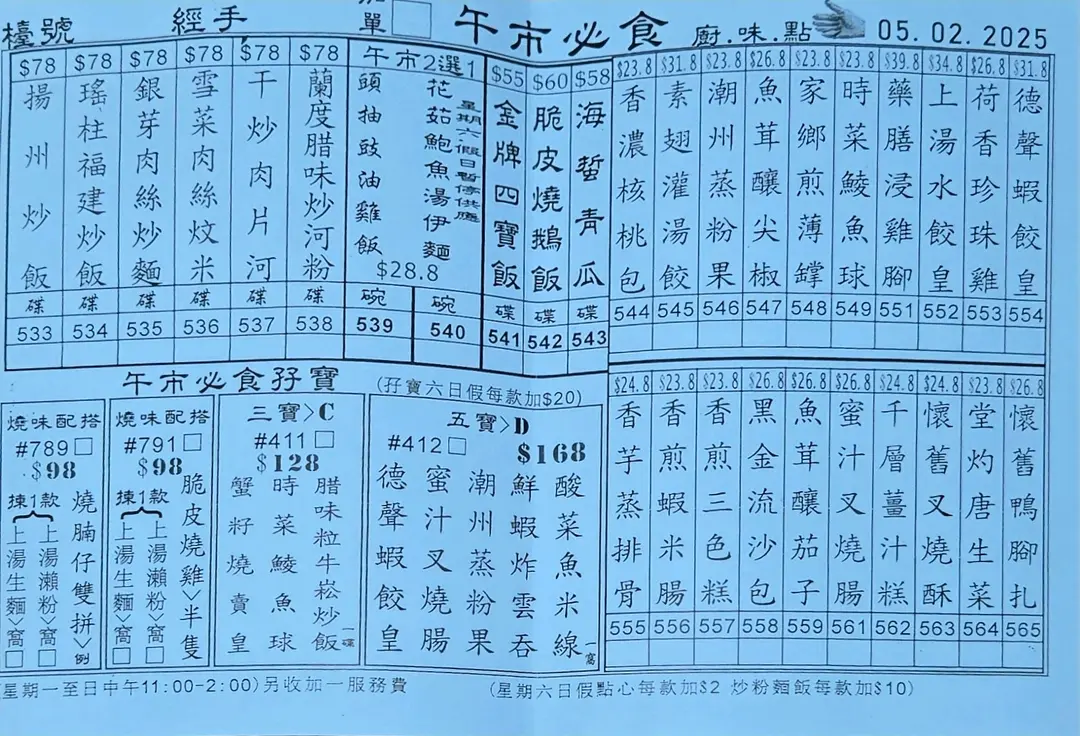 檯號 經手 加單 午市必食 廚.味.點 05.02.2025
$78 揚州炒飯 碟 533
$78 瑤柱福建炒飯 碟 534
$78 銀芽肉絲炒麵 碟 535
$78 雪菜肉絲炆米 碟 536
$78 干炒肉片河 碟 537
$78 蘭度腊味炒河粉 碟 538
午市2選1
頭抽豉油雞飯
花茹鮑魚湯伊麵
星期六假日暫停供應
$28.8
碗 539
碗 540
$55 金牌四寶飯 碟 541
$60 脆皮燒鵝飯 碟 542
$58 海蜇青瓜 碟 543
$23.8 香濃核桃包 544
$31.8 素翅灌湯餃 545
$23.8 潮州蒸粉果 546
$26.8 魚茸釀尖椒 547
$23.8 家鄉煎薄罉 548
$23.8 時菜鯪魚球 549
$39.8 藥膳浸雞腳 551
$34.8 上湯水餃皇 552
$26.8 荷香珍珠雞 553
$31.8 德聲蝦餃皇 554
午市必食孖寶
(孖寶六日假每款加$20)
燒味配搭
#789□
$98
揀1款
上湯生麵>窩□
上湯瀨粉>窩□
燒腩仔雙拼>例
燒味配搭
#791□
$98
揀1款
上湯生麵>窩□
上湯瀨粉>窩□
脆皮燒雞>半隻
三寶>C
#411□
$128
蟹籽燒賣皇
時菜鯪魚球
腊味粒牛崧炒飯一碟
五寶>D
#412□ $168
德聲蝦餃皇
蜜汁叉燒腸
潮州蒸粉果
鮮蝦炸雲吞
酸菜魚米線一窩
$24.8 香芋蒸排骨 555
$23.8 香煎蝦米腸 556
$23.8 香煎三色糕 557
$26.8 黑金流沙包 558
$26.8 魚茸釀茄子 559
$26.8 蜜汁叉燒腸 561
$24.8 千層薑汁糕 562
$24.8 懷舊叉燒酥 563
$23.8 堂灼唐生菜 564
$26.8 懷舊鴨腳扎 565
(星期一至日中午11:00-2:00)另收加一服務費
(星期六日假點心每款加$2 炒粉麵飯每款加$10)